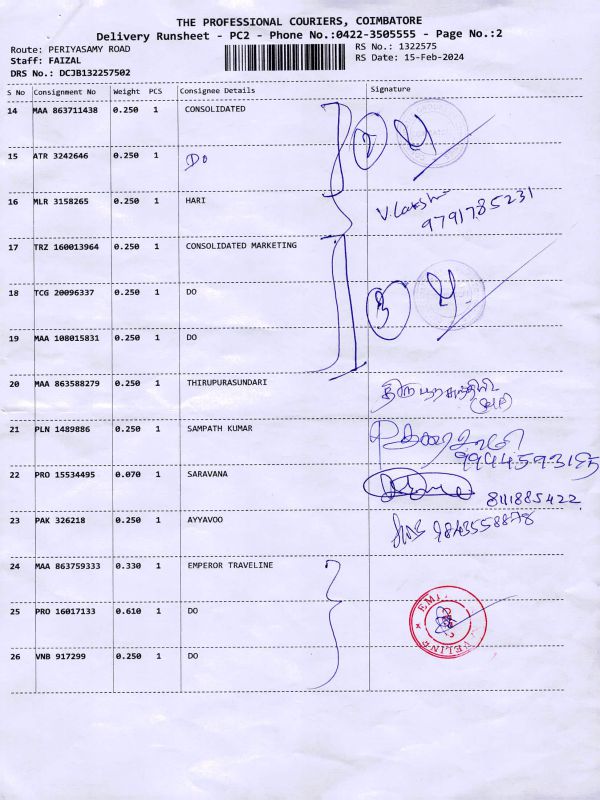 THE PROFESSIONAL COURIERS, COIMBATORE
Delivery Runsheet - PC2 - Phone No.:0422-3505555 - Page No.:2
Route: PERIYASAMY ROAD RS No.: 1322575
Staff: FAIZAL RS Date: 15-Feb-2024
DRS No.: DCJB132257502
S No Consignment No Weight PCS Consignee Details Signature
14 MAA 863711438 0.250 1 CONSOLIDATED
2
15 ATR 3242646 0.250 1 Do
16 MLR 3158265 0.250 1 HARI V. Lakshmi
9791785231
17 TRZ 160013964 0.250 1 CONSOLIDATED MARKETING
18 TCG 20096337 0.250 1 DO
3
19 MAA 108015831 0.250 1 DO
20 MAA 863588279 0.250 1 THIRUPURASUNDARI திருபுரசுந்தரி
21 PLN 1489886 0.250 1 SAMPATH KUMAR
22 PRO 15534495 0.070 1 SARAVANA 8111885422
23 PAK 326218 0.250 1 AYYAVOO 9843558878
24 MAA 863759333 0.330 1 EMPEROR TRAVELINE
25 PRO 16017133 0.610 1 DO
26 VNB 917299 0.250 1 DO